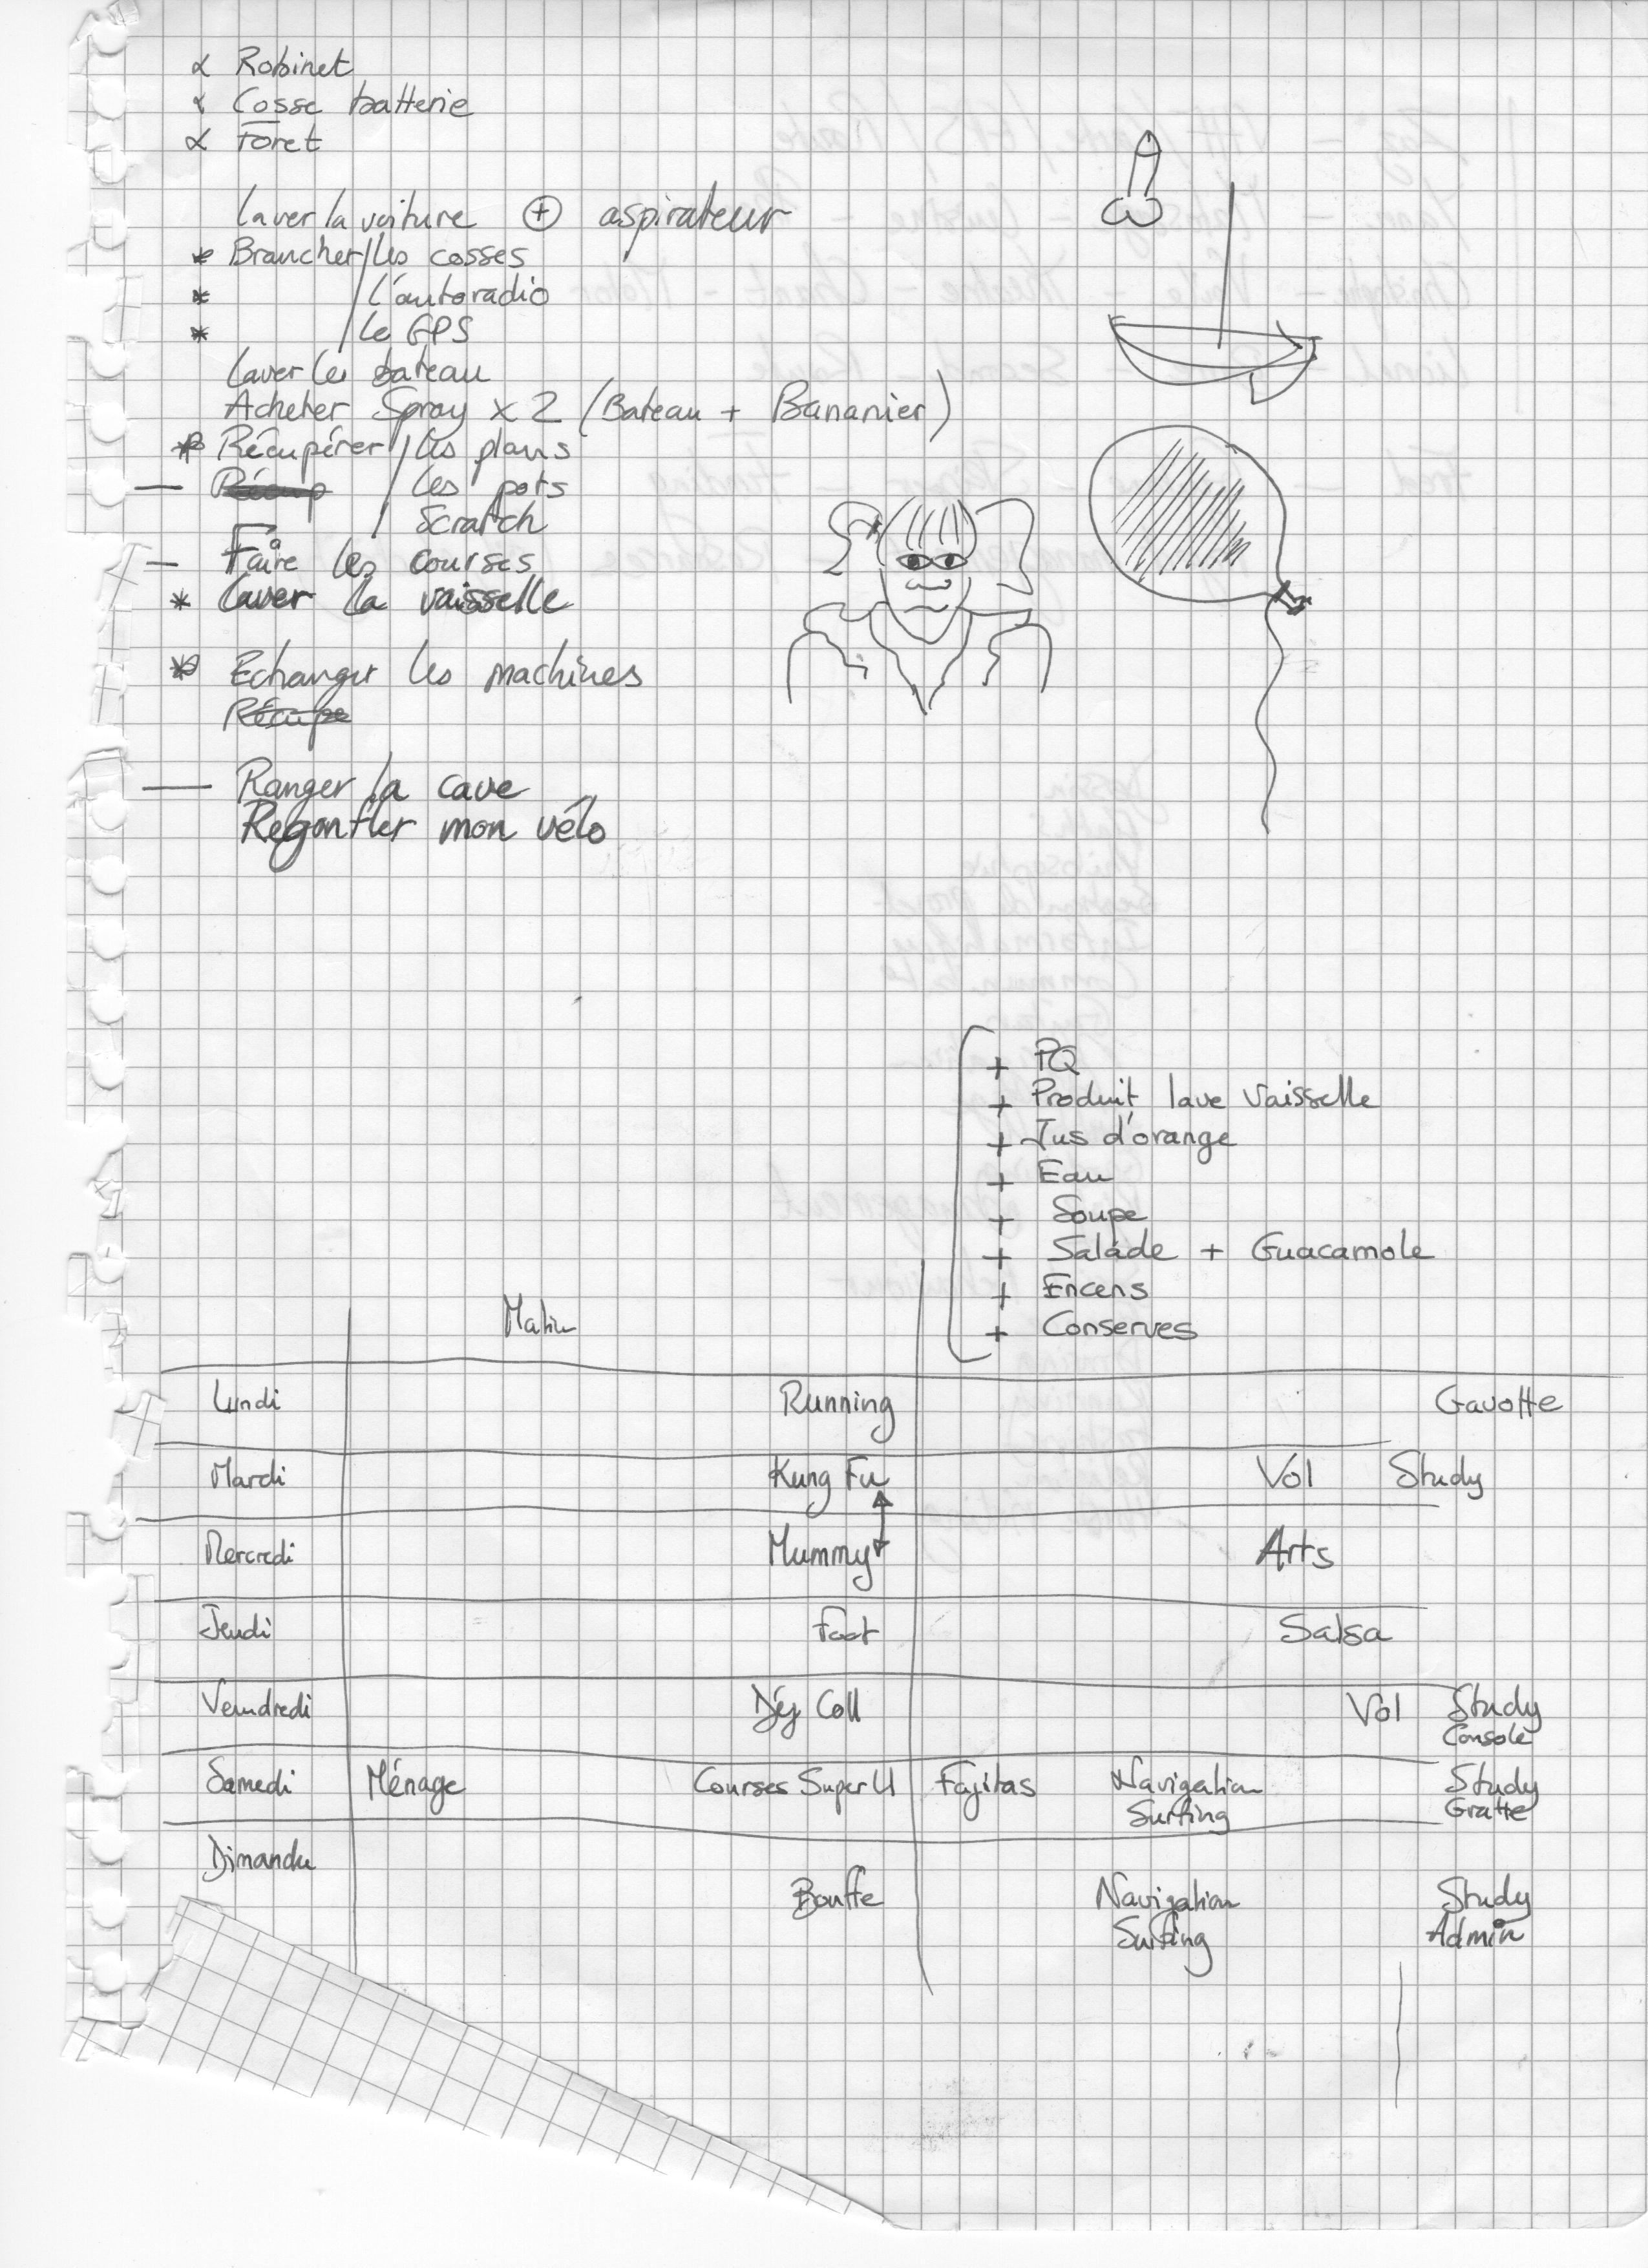 α Robinet
α Cosse batterie
α Foret
Laver la voiture ⊕ aspirateur
* Brancher / les cosses
* / l'autoradio
* / le GPS
Laver les bateau
Acheter Spray x 2 (Bateau + Bananier)
* Récupérer / les plans
— Récup / les pots
/ Scratch
— Faire les courses
* Laver la vaisselle
* Echanger les machines
Récupe
— Ranger la cave
Regonfler mon vélo
+ PQ
+ Produit lave vaisselle
+ Jus d'orange
+ Eau
+ Soupe
+ Salade + Guacamole
+ Encens
+ Conserves
Matin
Lundi Running Gavotte
Mardi Kung Fu Vol Study
Mercredi Mummy Arts
Jeudi Foot Salsa
Vendredi Déj Coll Vol Study
Console
Samedi Ménage Courses Super U Fajitas Navigation Study
Surfing Gratte
Dimanche
Bouffe Navigation Study
Surfing Admin